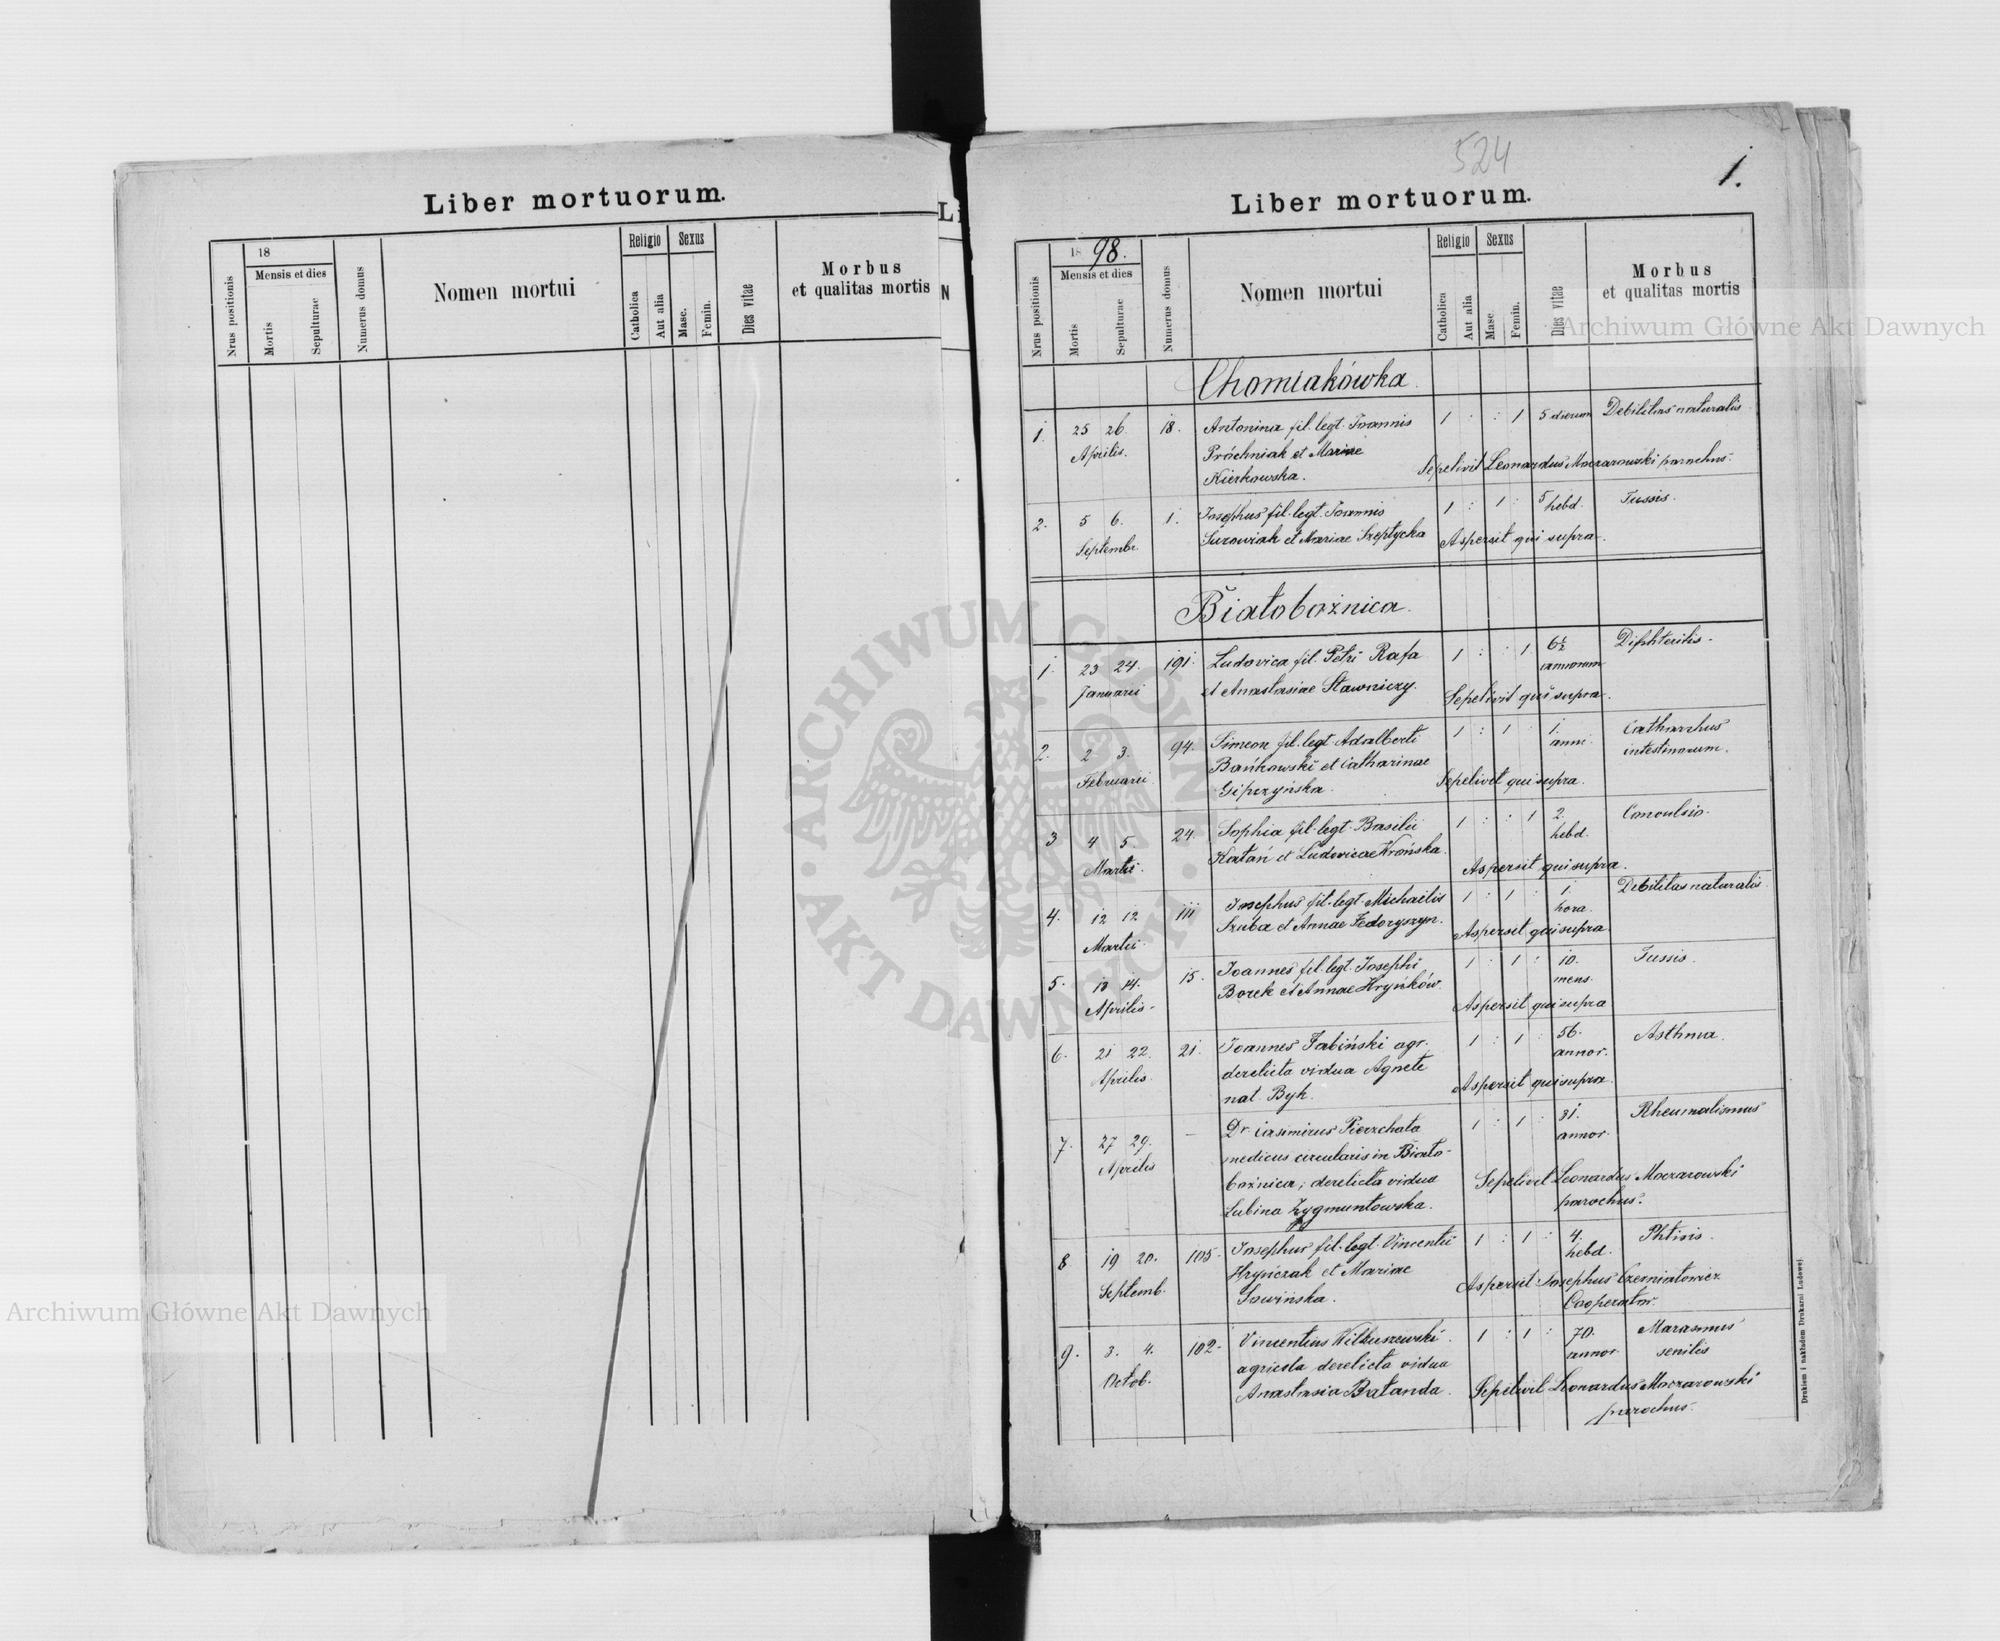 Liber mortuorum.
18
Mensis et dies
Nrus positionis
Mortis
Sepulturae
Numerus domus
Nomen mortui
Religio
Sexus
Catholica
Aut alia
Masc.
Femin.
Dies vitae
Morbus
et qualitas mortis
524
1.
Liber mortuorum.
1898.
Mensis et dies
Nrus positionis
Mortis
Sepulturae
Numerus domus
Nomen mortui
Religio
Sexus
Catholica
Aut alia
Masc.
Femin.
Dies vitae
Morbus
et qualitas mortis
Chomiakówka.
1. 25 26. 18. Antonina fil. legt. Joannis 1 : : 1 5 dierum Debilitas naturalis
Aprilis. Próchniak et Mariae Sepelivit Leonardus Moczarowski parochus.
Kierkowska.
2. 5 6. 1. Josephus fil. legt. Joannis 1 : 1 : 5 hebd. Tussis.
Septembr. Surowiak et Mariae Szeptycka Aspersit qui supra.
Białobożnica.
1. 23 24. 191. Ludovica fil. Petri Rafa 1 : : 1 6½ annorum Diphteritis.
Januarii et Anastasiae Stawniczy. Sepelivit qui supra.
2. 2 3. 94. Simeon fil. legt. Adalberti 1 : 1 : 1. anni. Catharrhus
Februarii Bańkowski et Catharinae intestinorum.
Gipczyńska. Sepelivit qui supra.
3 4 5. 24. Sophia fil. legt. Basilii 1 : : 1 2. hebd. Convulsio.
Martii. Katań et Ludovicae Krońska. Aspersit qui supra.
4. 12 12. 111 Josephus fil. legt. Michaelis 1 : 1 : 1. hora. Debilitas naturalis
Martii. Szuba et Annae Fedoryszyn. Aspersit qui supra
5. 13 14. 15. Joannes fil. legt. Josephi 1 : 1 : 10. mens. Tussis.
Aprilis. Borek et Annae Hryńków. Aspersit qui supra
6. 21 22. 21. Joannes Fabiński agr. 1 : 1 : 56. annor. Asthma.
Aprilis. derelicta vidua Agnete Aspersit qui supra
nat. Byk.
7. 27 29. — Dr. Casimirus Pierzchata 1 : 1 : 31. annor. Rheumatismus
Aprilis medicus circularis in Biało-
bożnica; derelicta vidua Sepelivit Leonardus Moczarowski
Lubina Zygmuntowska. parochus.
8 19 20. 105. Josephus fil. legt. Vincentii 1 : 1 : 4. hebd. Phtisis.
Septemb. Hryńczak et Mariae Aspersit Josephus Czerniatowicz
Sowińska. Cooperator.
9. 3. 4. 102. Vincentius Wilkuszewski 1 : 1 : 70. annor Marasmus
Octob. agricola derelicta vidua senilis
Anastasia Bałanda. Sepelivit Leonardus Moczarowski
parochus.
Drukiem i nakładem Drukarni Ludowej
Archiwum Główne Akt Dawnych
Archiwum Główne Akt Dawnych
ARCHIWUM GŁÓWNE AKT DAWNYCH